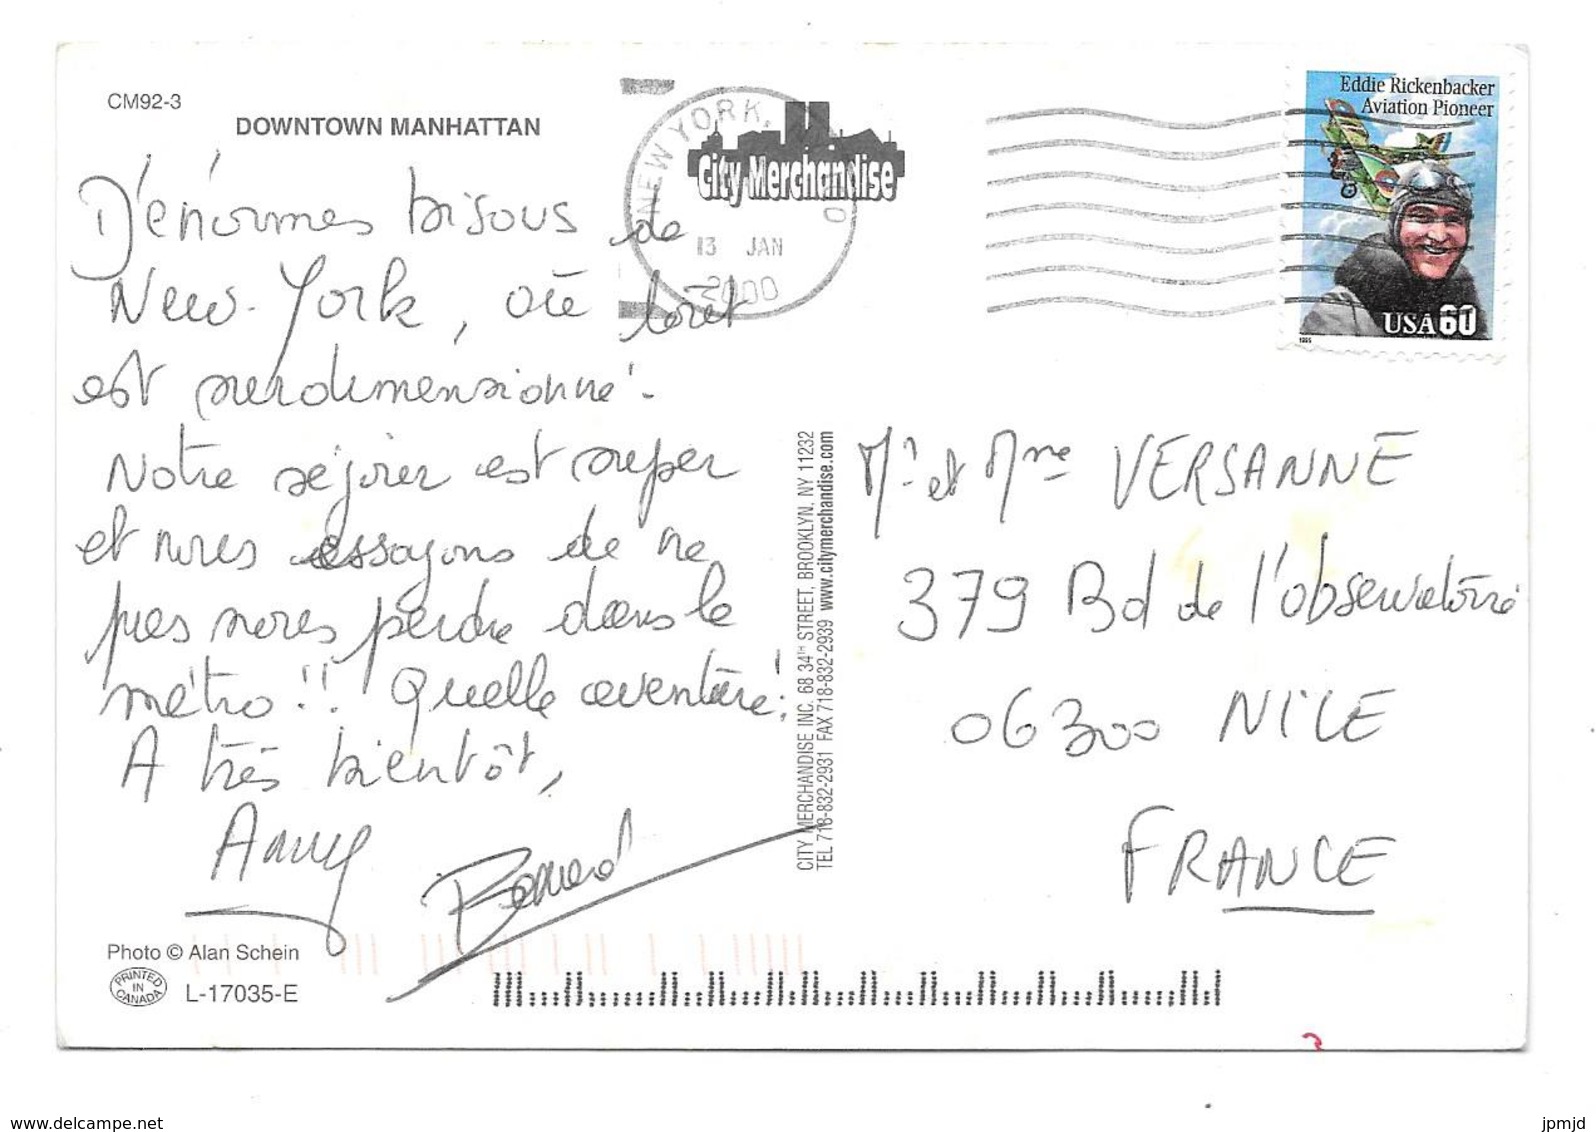 CM92-3
DOWNTOWN MANHATTAN
D'énormes bisous de
New-York, où tout
est surdimensionné.
Notre séjour est super
et nous essayons de ne
pas nous perdre dans le
métro!! Quelle aventure!
A très bientôt,
Bernard
Photo © Alan Schein
PRINTED
IN
CANADA
L-17035-E
NEW YORK,
13 JAN
2000
City Merchandise
Eddie Rickenbacker
Aviation Pioneer
USA 60
1995
CITY MERCHANDISE INC. 68 34TH STREET, BROOKLYN, NY 11232
TEL 718-832-2931 FAX 718-832-2939 www.citymerchandise.com
Mr et Mme VERSANNE
379 Bd de l'observatoire
06300 NICE
FRANCE
www.delcampe.net
jpmjd